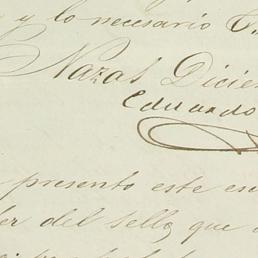 y lo necesario
Nazas Diciem
Eduardo
presento este es
der del sello que